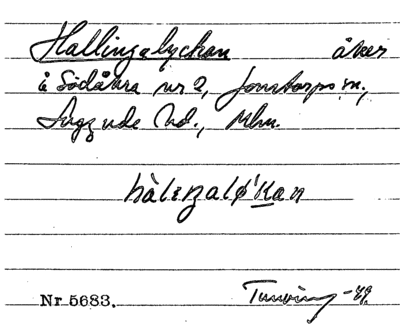 Hallingalyckan åker
å Södåkra nr 2, Jonstorps sn,
Luggude hd., Mlm.
hàlɩŋalø̀'Kan
Nr 5683. -49.